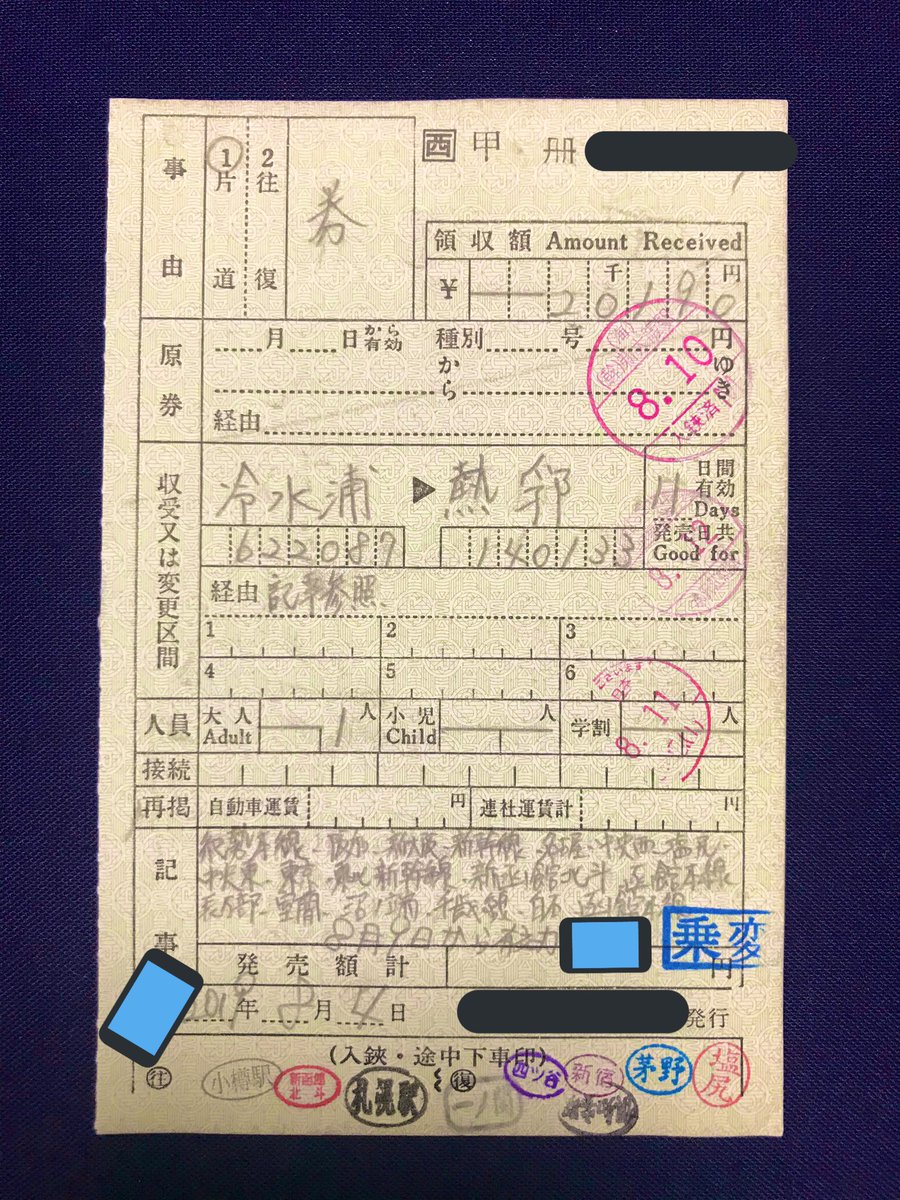 事由
1片道
2往復
券
西 甲 冊
領収額 Amount Received
千 円
¥ 20190
原券
月 日から有効 種別 号 円
から ゆき
経由
8.10
入鋏済
収受又は変更区間
冷水浦 ▶ 熱郛
622087 140133
11 日間有効
Days
発売日共
Good for
経由 記事参照
1 2 3
4 5 6
8.11
人員
大人 Adult 1 人
小児 Child 人
学割 人
接続
再掲 自動車運賃 円 連社運賃計 円
記事
紀勢本線 新大阪 新幹線 名古屋 中央西 塩尻
中央東 東京 東北新幹線 新函館北斗 函館本線
長万部 室蘭 沼ノ端 千歳線 白石 函館本線
8月9日から有効
乗変
発売額計 円
2019年 8月 4日 発行
(入鋏・途中下車印)
往 小樽駅 新函館北斗 札幌駅 復 一ノ関 四ツ谷 新宿 茅野 塩尻